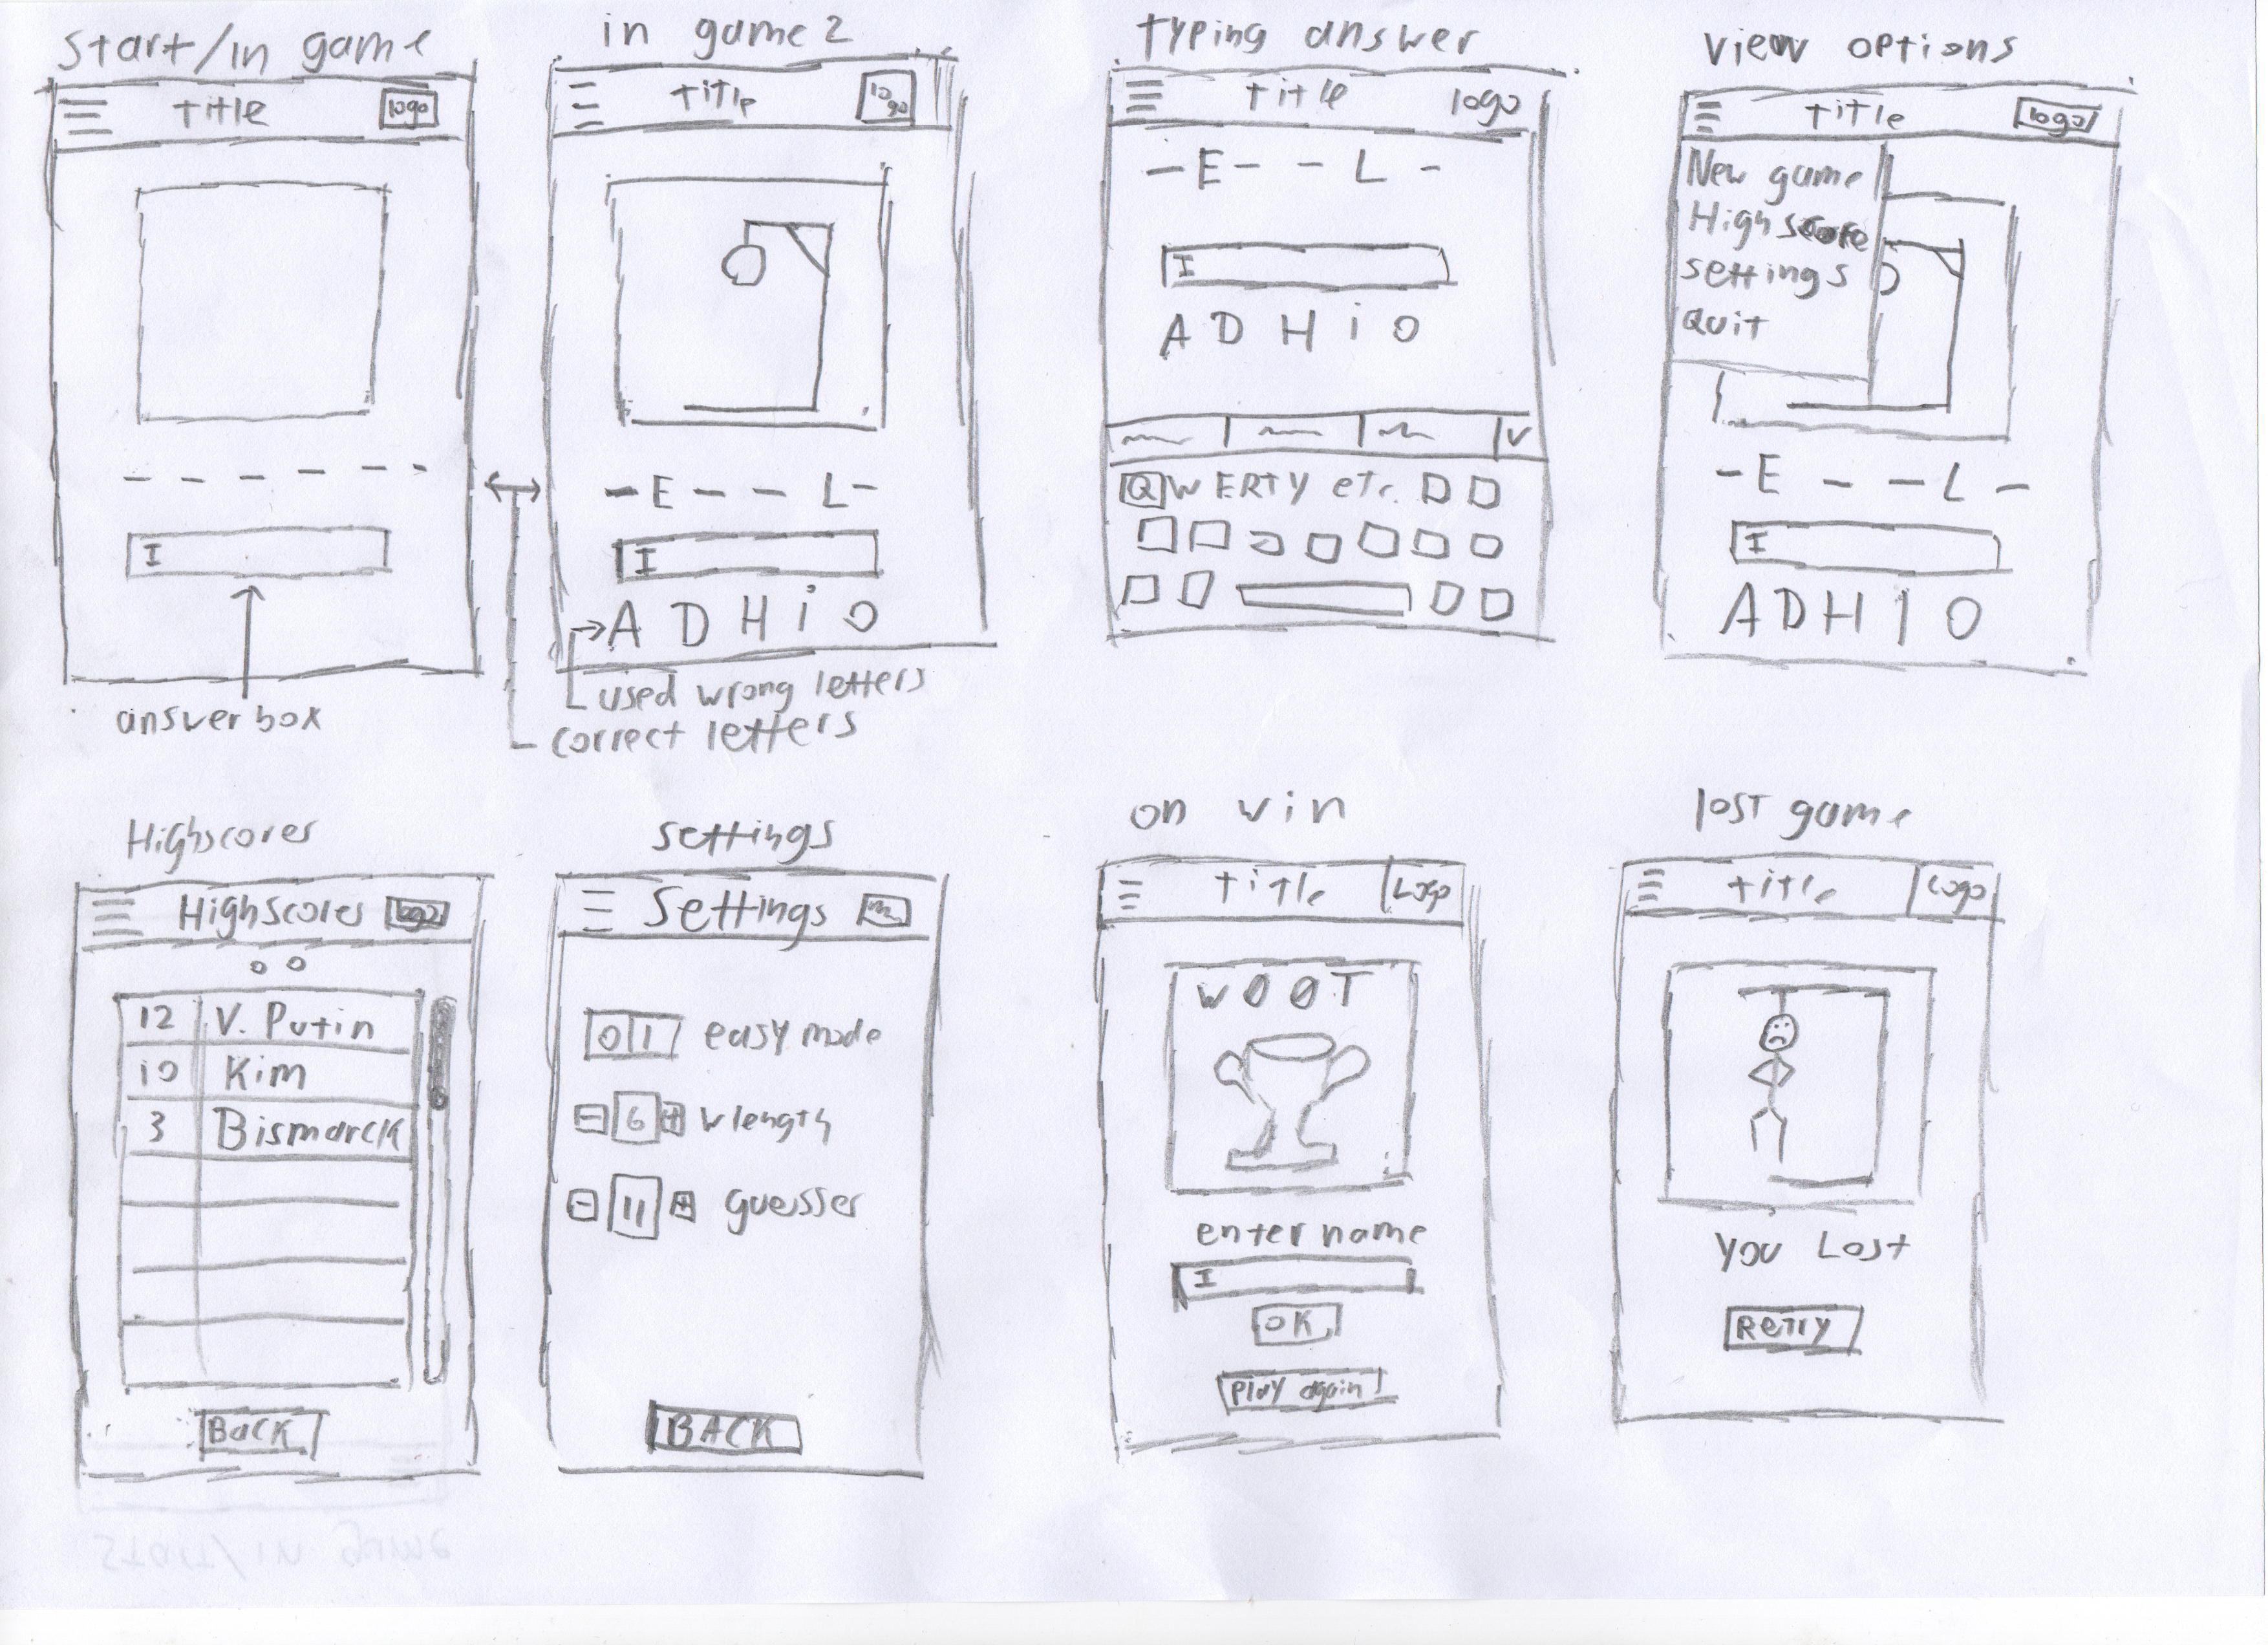 start/in game
title
logo
I
answerbox
in game 2
title
logo
E L
I
A D H i O
used wrong letters
correct letters
typing answer
title
logo
E L
I
A D H i O
V
QWERTY etc.
view options
title
logo
New game
Highscore
settings
Quit
E L
I
A D H I O
Highscores
Highscores
logo
12 V. Putin
10 Kim
3 Bismarck
Back
settings
Settings
0 1 easy mode
- 6 + wlength
- 11 + guesses
BACK
on win
title
Logo
WOOT
enter name
I
OK
Play again!
lost game
title
Logo
You Lost
Retry
start/in game